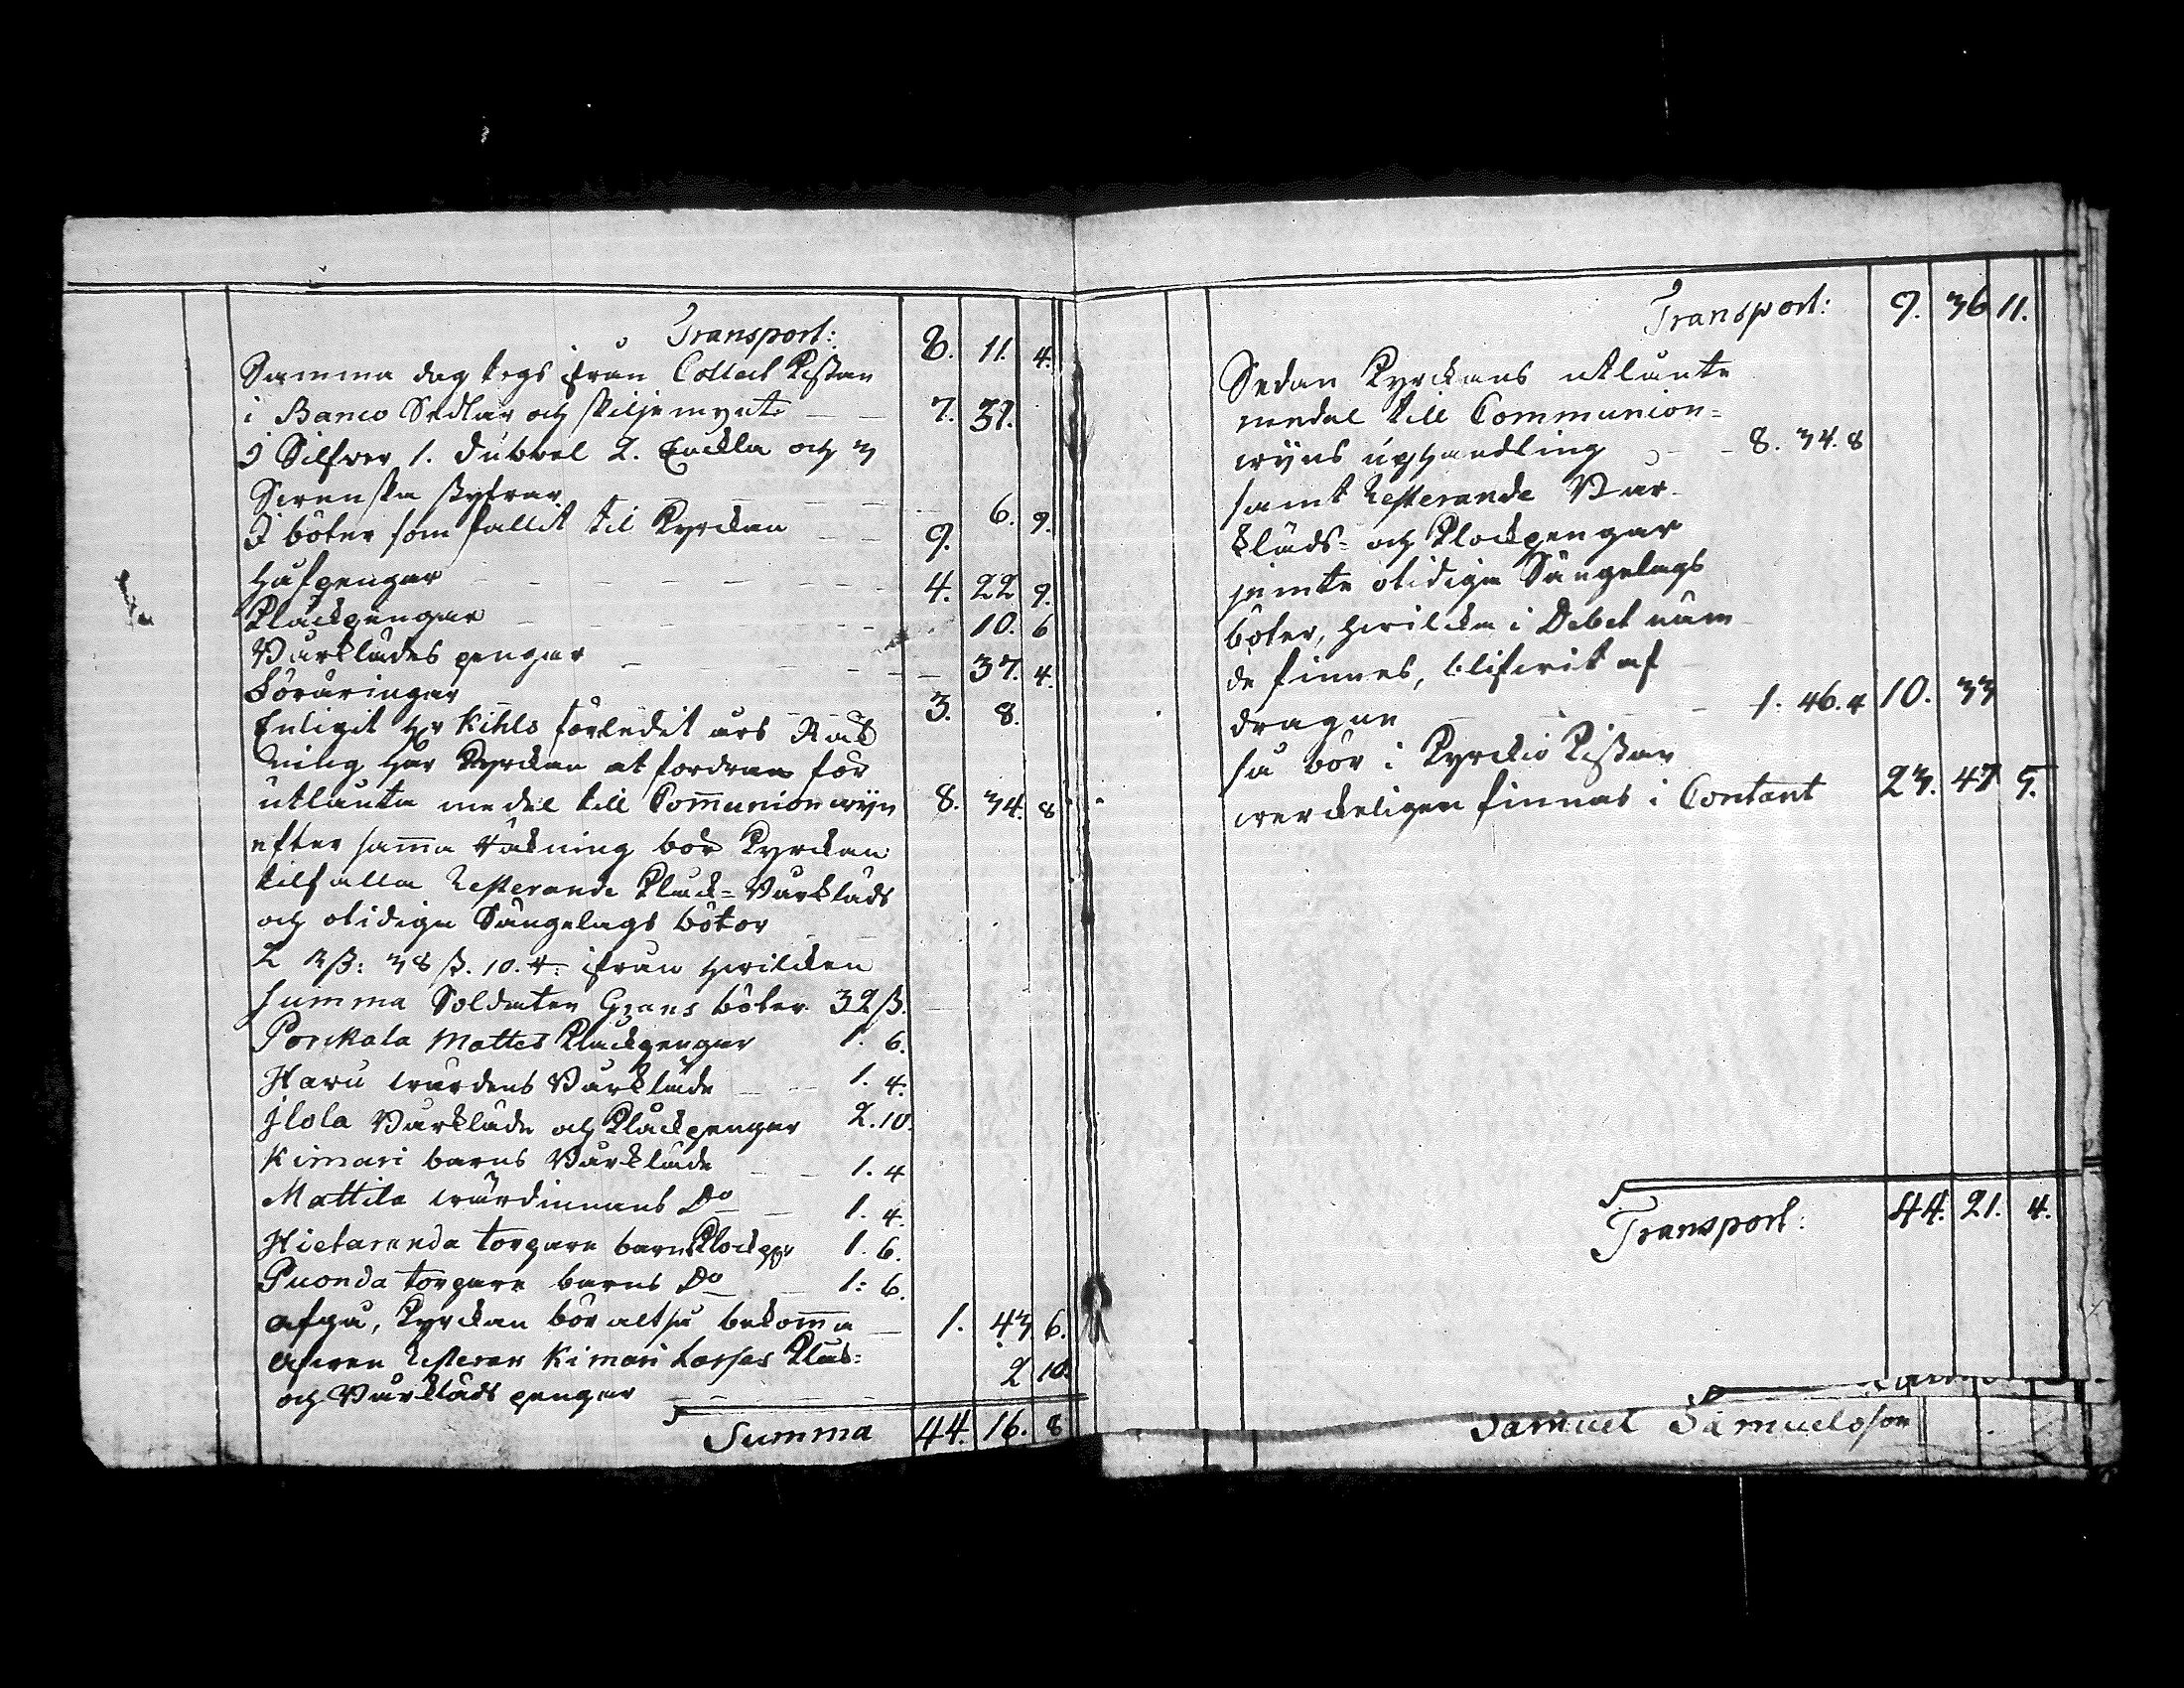 Transport: 8. 11. 4.
Samma dag togs ifrån Collect Kistan
i Banco Sedlar och skiljemynt 7. 31.
I Silfver 1. dubbel 2. Enckla och 3
Svenska styfrar 6. 9.
I böter som fallit til Kyrckan 9.
Håfpengar 4. 22 9.
Klåckpengar 10. 6
Vårklädes pengar 37. 4.
Föräringar 3. 8.
Enligit Hr Kihls förledit års Räk
ning har Kyrckan at fordran för
utlånta medel till Communion wijn 8. 34. 8
efter samma räkning bör Kyrckan
tilfalla resterande Klåck= Vårkläds
och otidiga Sängelags böter
2 Rß: 38 ß. 10. r: ifrån hvilcken
summa Soldaten Grans böter 32 ß.
Porckala Mattes Klåckpengar 1. 6.
Haru wärdens Vårkläde 1. 4.
Jlola Vårkläde och Klåckpengar 2. 10.
Kimari barns Vårkläde 1. 4
Mattila wärdinnans Do 1. 4.
Hietaranda torpare barns Klockpgr 1. 6.
Puonda torpare barns Do 1: 6.
afgå, Kyrckan bör altså bekomma 1. 43 6.
Äfven resterar Kimari Larsas Klåck=
och Vårkläds pengar 2 10.
Summa 44. 16. 8
Transport: 9. 36 11.
Sedan Kyrckans utlånte
medel till Communion=
wijns uphandling 8. 34. 8
samt resterande Vår-
kläds= och Klockpengar
jemte otidiga Sängelags
böter, hvilcka i Debet näm
de finnes, blifvit af
dragne 1. 46. 4 10. 33
så bör i Kyrckio Kistan
werckeligen finnas i Contant 23. 47 5.
Transport: 44. 21. 4.
Samuel Samuelsson